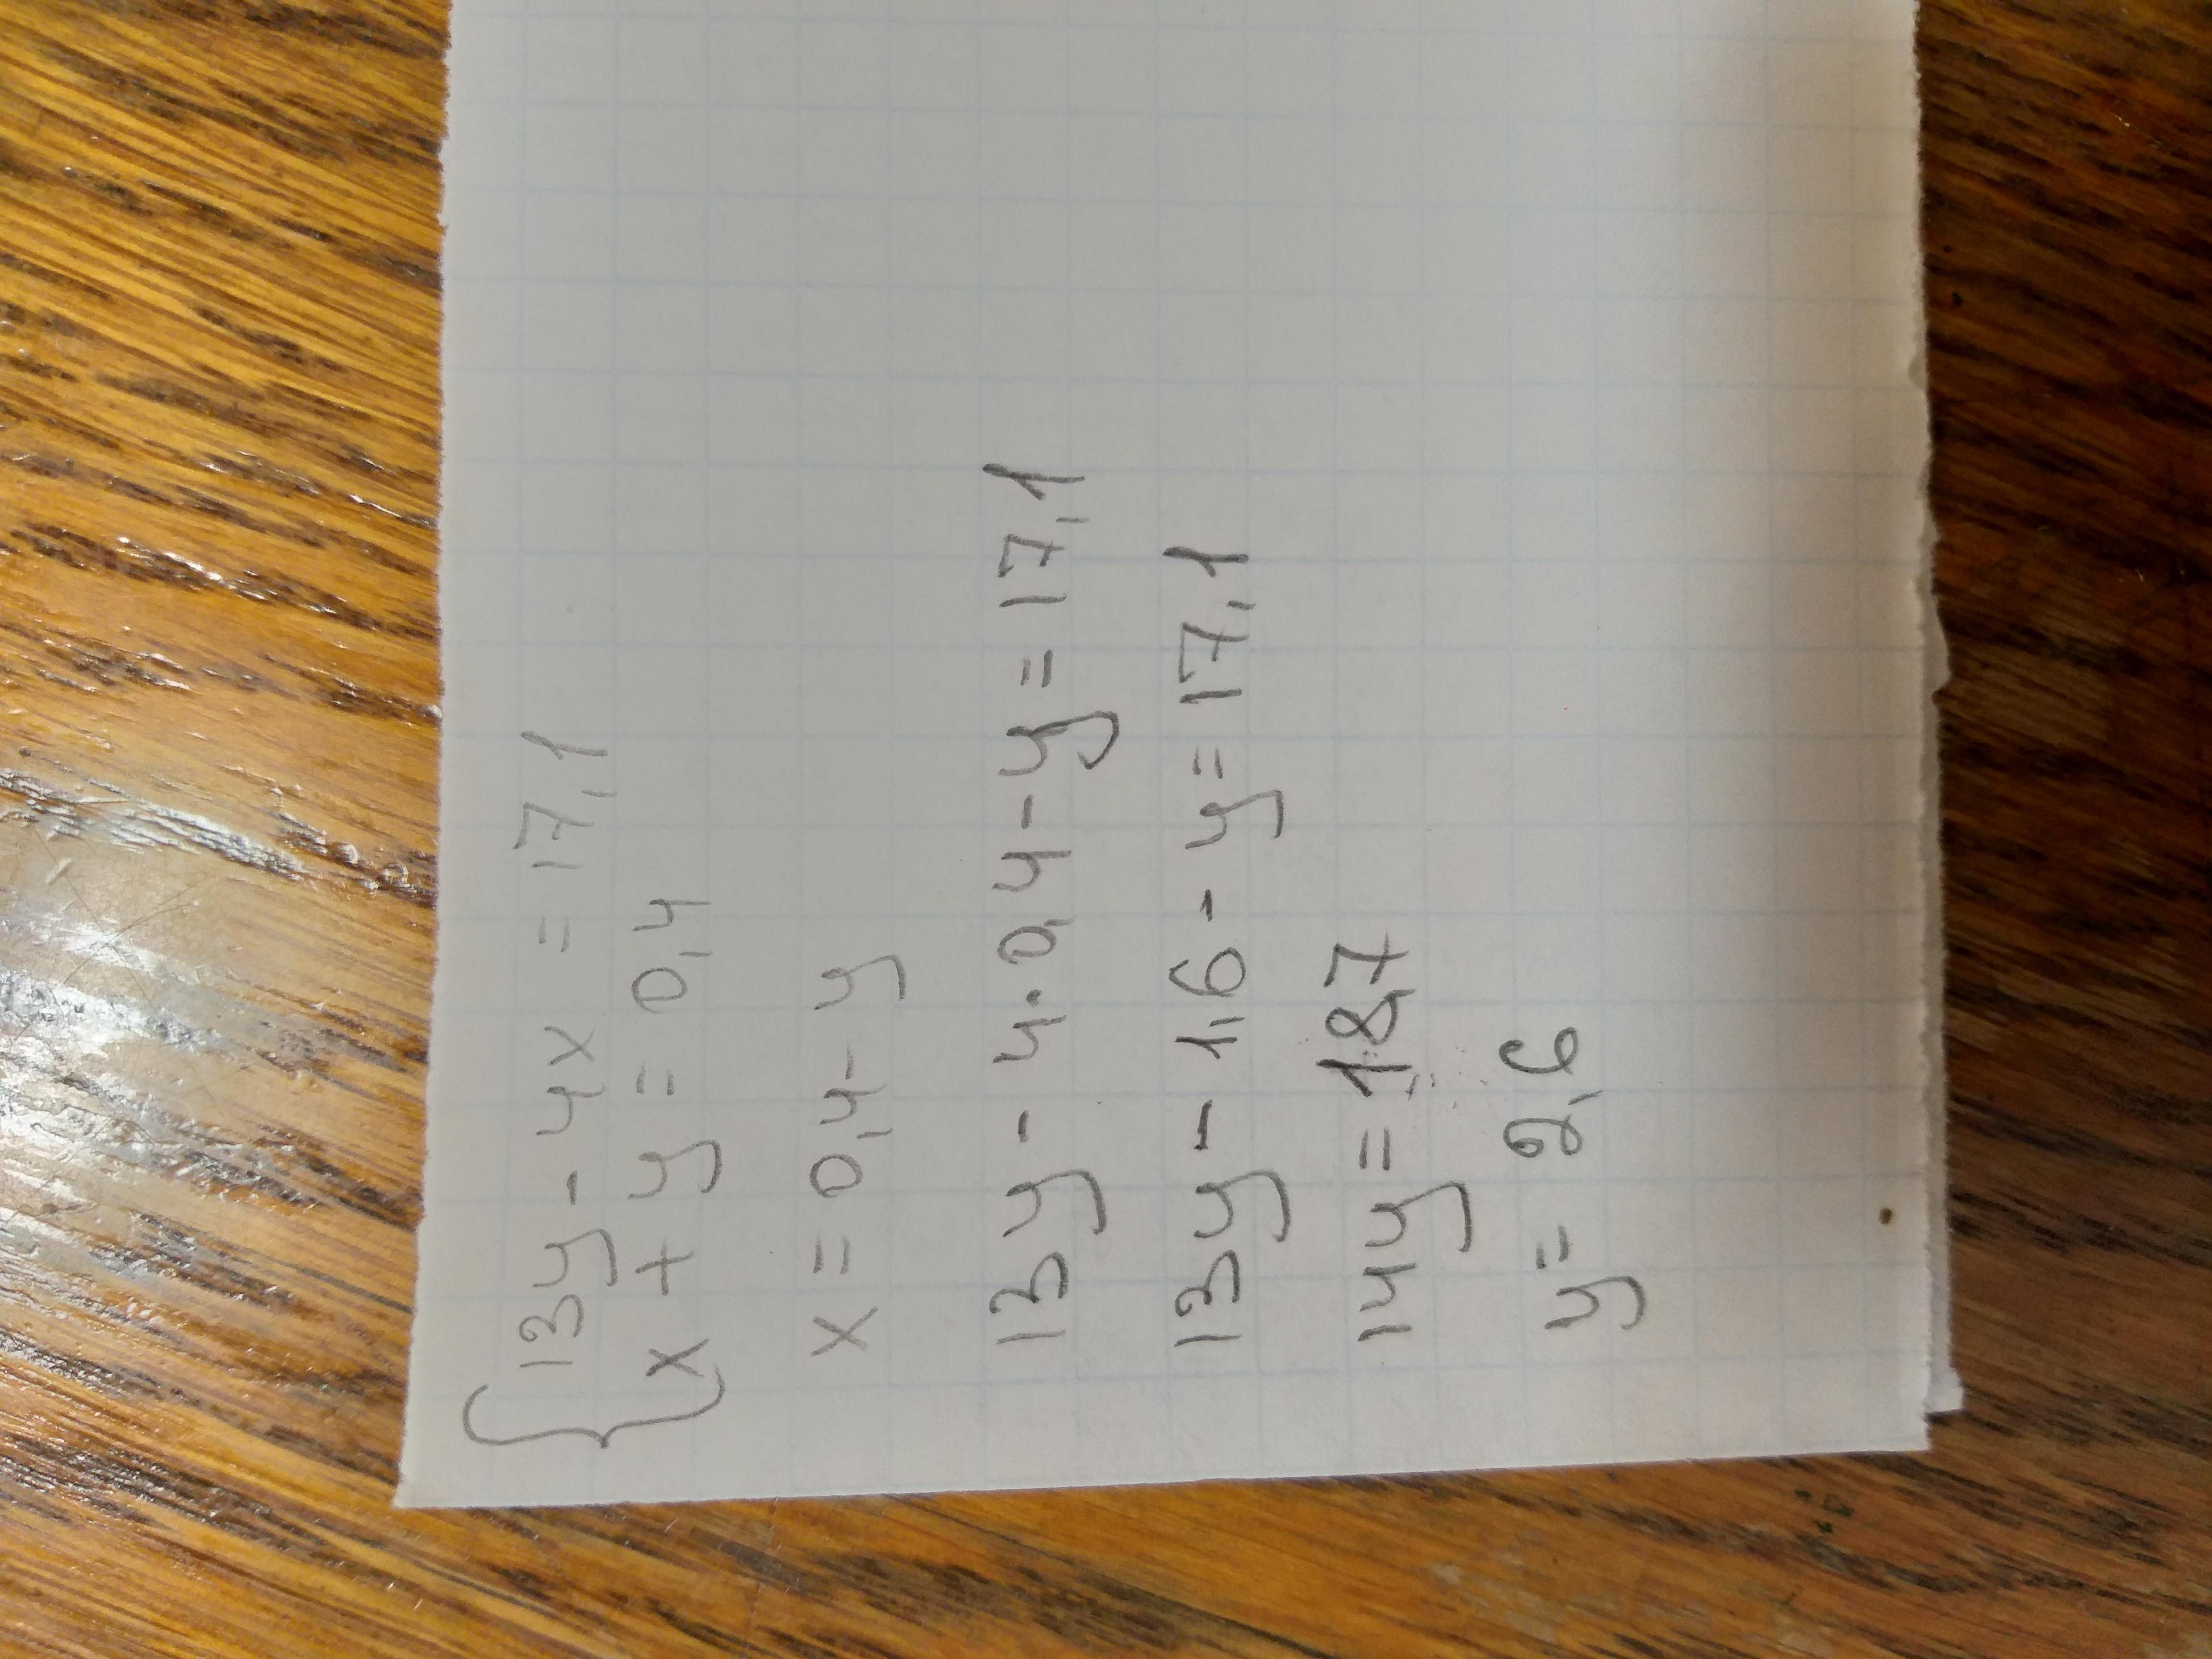 { 13y - 4x = 17,1
x + y = 0,4
x = 0,4 - y
13y - 4·0,4 - y = 17,1
13y - 1,6 - y = 17,1
14y = 18,7
y = 2,6